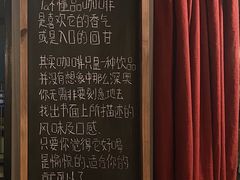 么懂品咖啡
是喜欢它的香气
或是入口的回甘
其实咖啡只是一种饮品
并没有想象中那么深奥
你无需非要刻意地去
找出书面上所描述的
风味及口感
只要你觉得它好喝
是愉悦的,适合你的